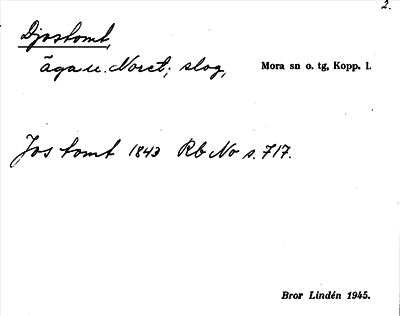 2.
Djostomt,
äga u. Noret; slog, Mora sn o. tg, Kopp. l.
Jos tomt 1843 Rb No s. 717.
Bror Lindén 1945.